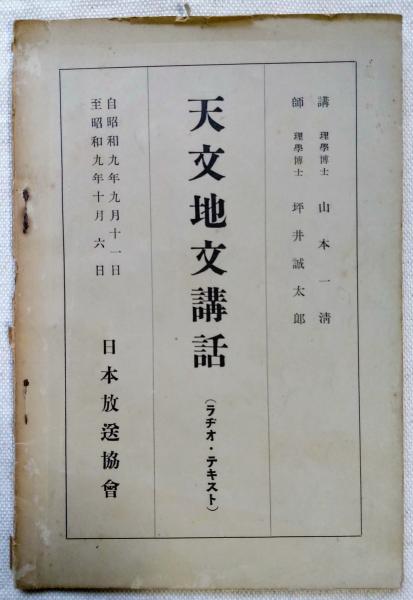 講師
理學博士 山本一淸
理學博士 坪井誠太郎
天文地文講話
(ラヂオ・テキスト)
自昭和九年九月十一日
至昭和九年十月六日
日本放送協會